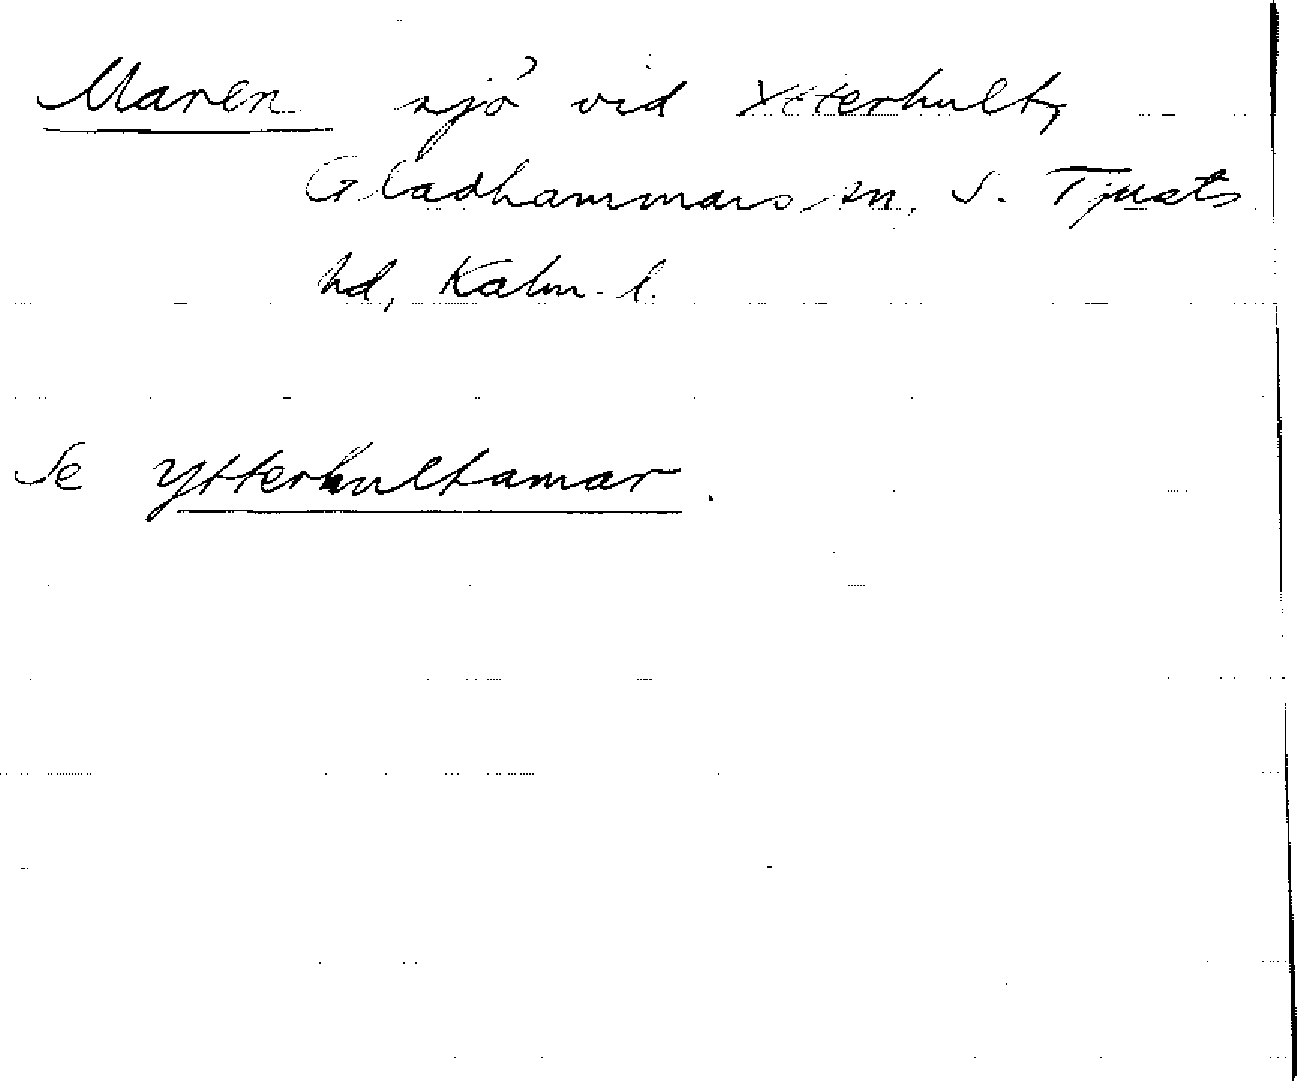 Maren sjö vid Ytterhult,
Gladhammars sn, S. Tjusts
hd, Kalm. l.
Se Ytterhultamar.